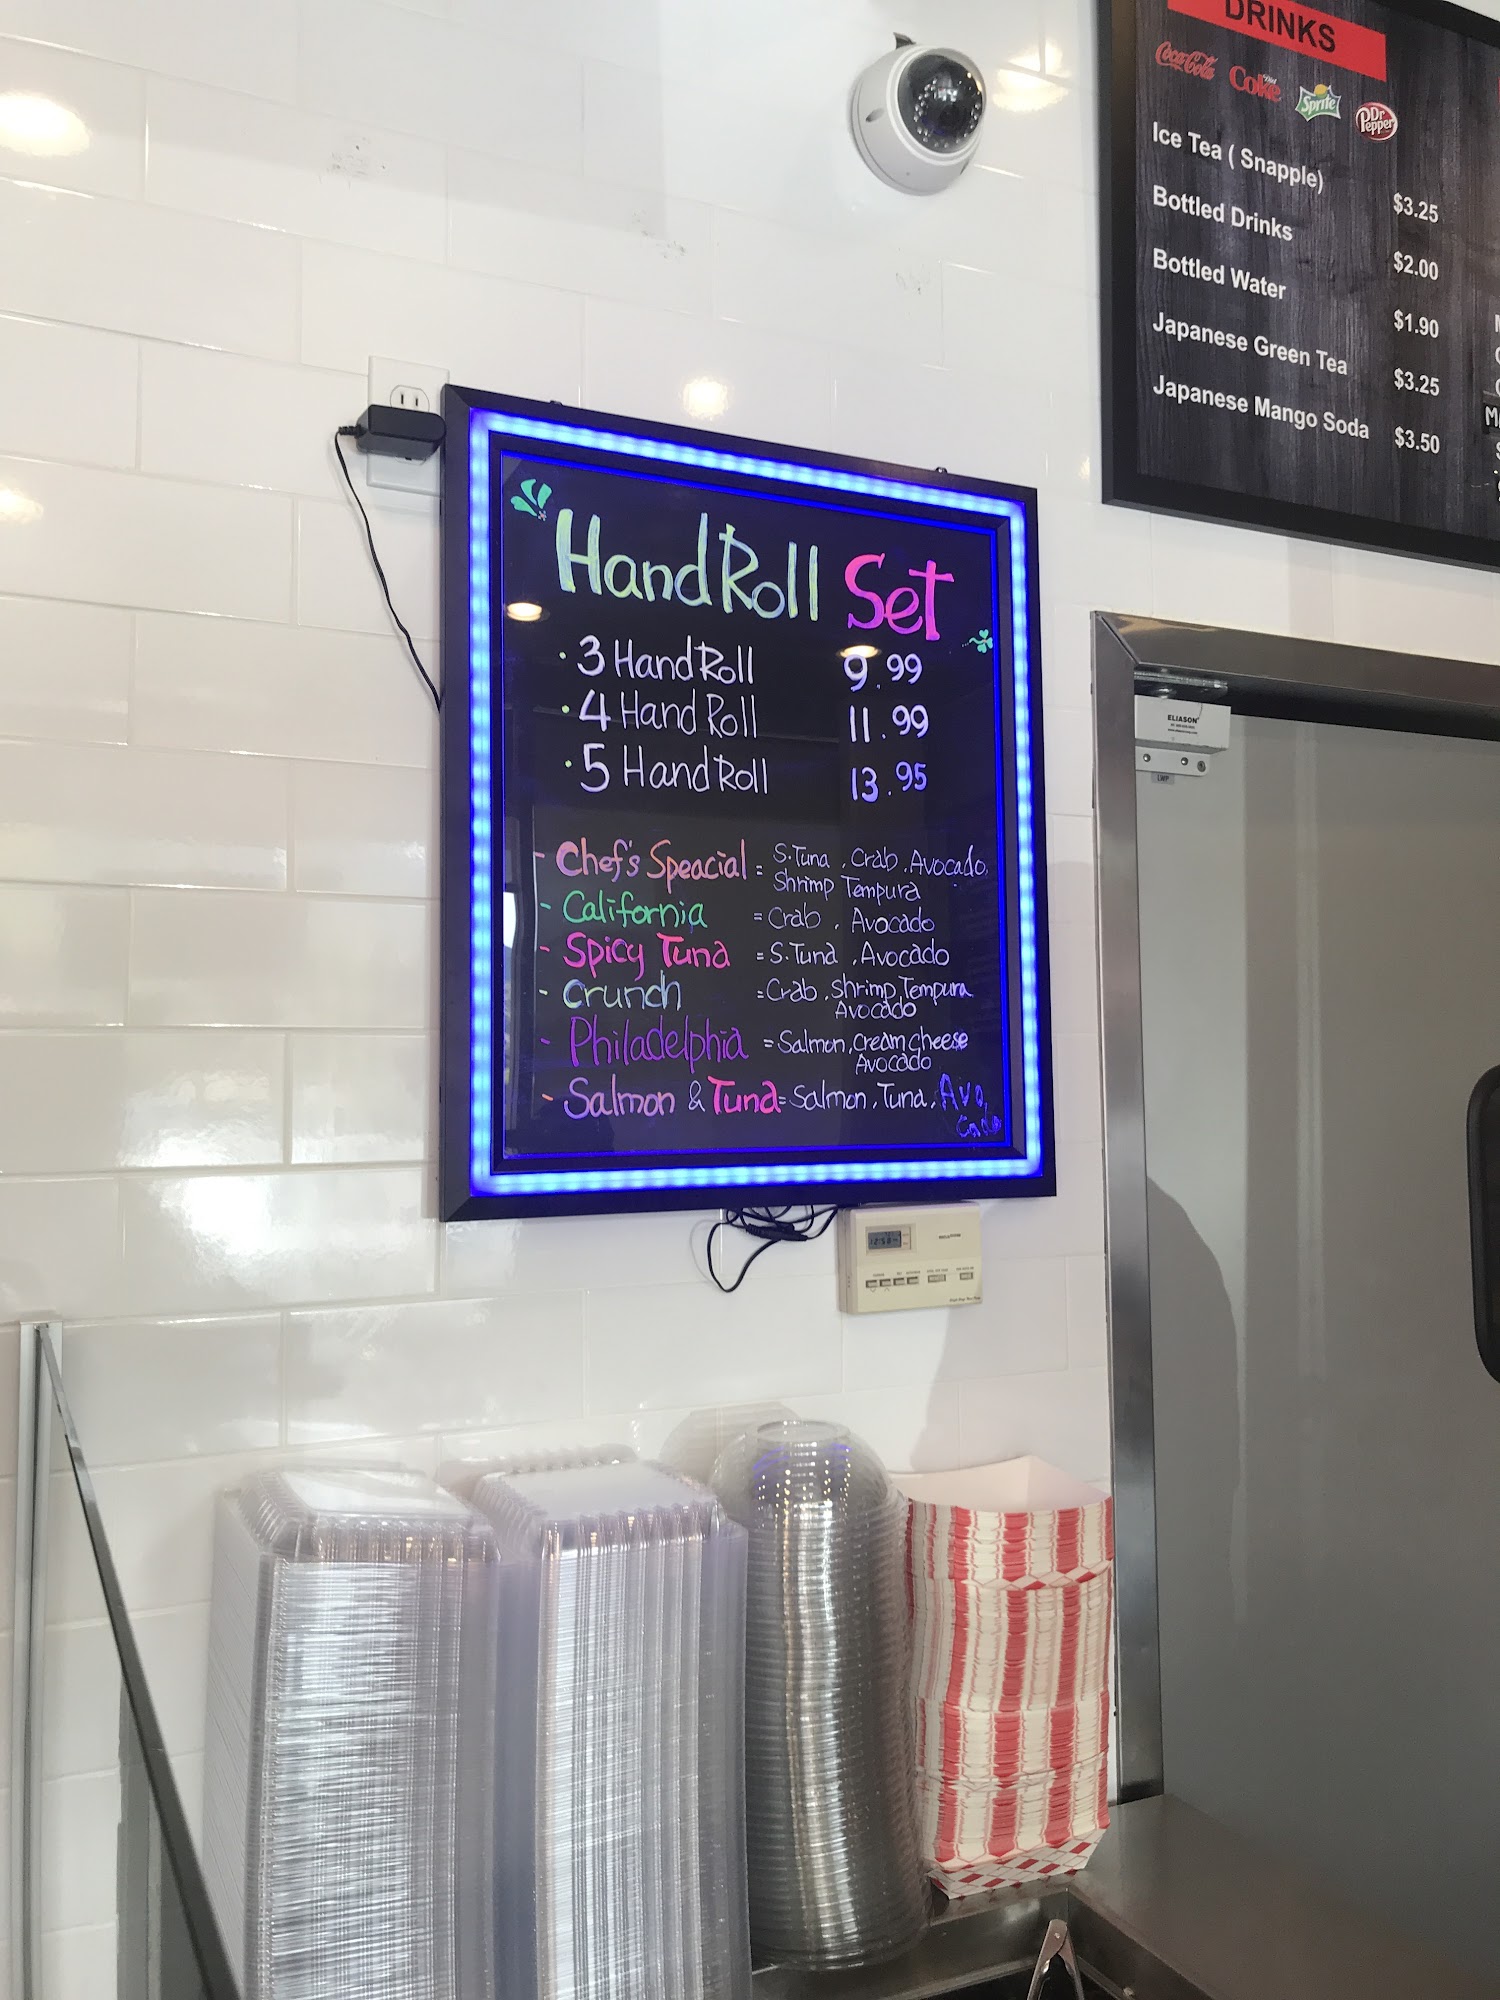 DRINKS
Coca-Cola Diet Coke Sprite Dr Pepper
Ice Tea ( Snapple) $3.25
Bottled Drinks $2.00
Bottled Water $1.90
Japanese Green Tea $3.25
Japanese Mango Soda $3.50
Hand Roll Set
· 3 Hand Roll 9.99
· 4 Hand Roll 11.99
· 5 Hand Roll 13.95
- Chef's Speacial = S.Tuna, Crab, Avocado,
Shrimp Tempura
- California = Crab, Avocado
- Spicy Tuna = S.Tuna, Avocado
- Crunch = Crab, Shrimp Tempura
Avocado
- Philadelphia = Salmon, Cream cheese
Avocado
- Salmon & Tuna = Salmon, Tuna, Avo
cado
ELIASON